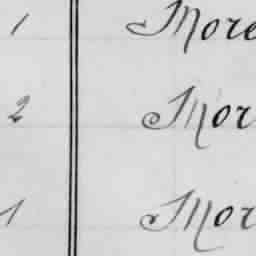 1 More
2 Mor
1 Mor